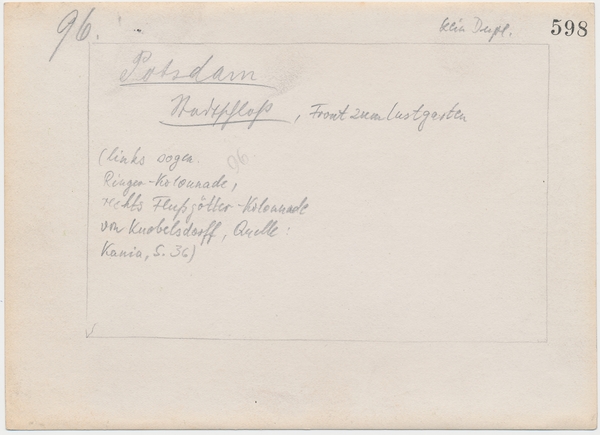 96.
Kein Dupl.
598
Potsdam
Stadtschloß, Front zum Lustgarten
(links sogen.
Ringer-Kolonnade,
rechts Flußgötter-Kolonnade
von Knobelsdorff, Quelle:
Kania, S. 36)
96.